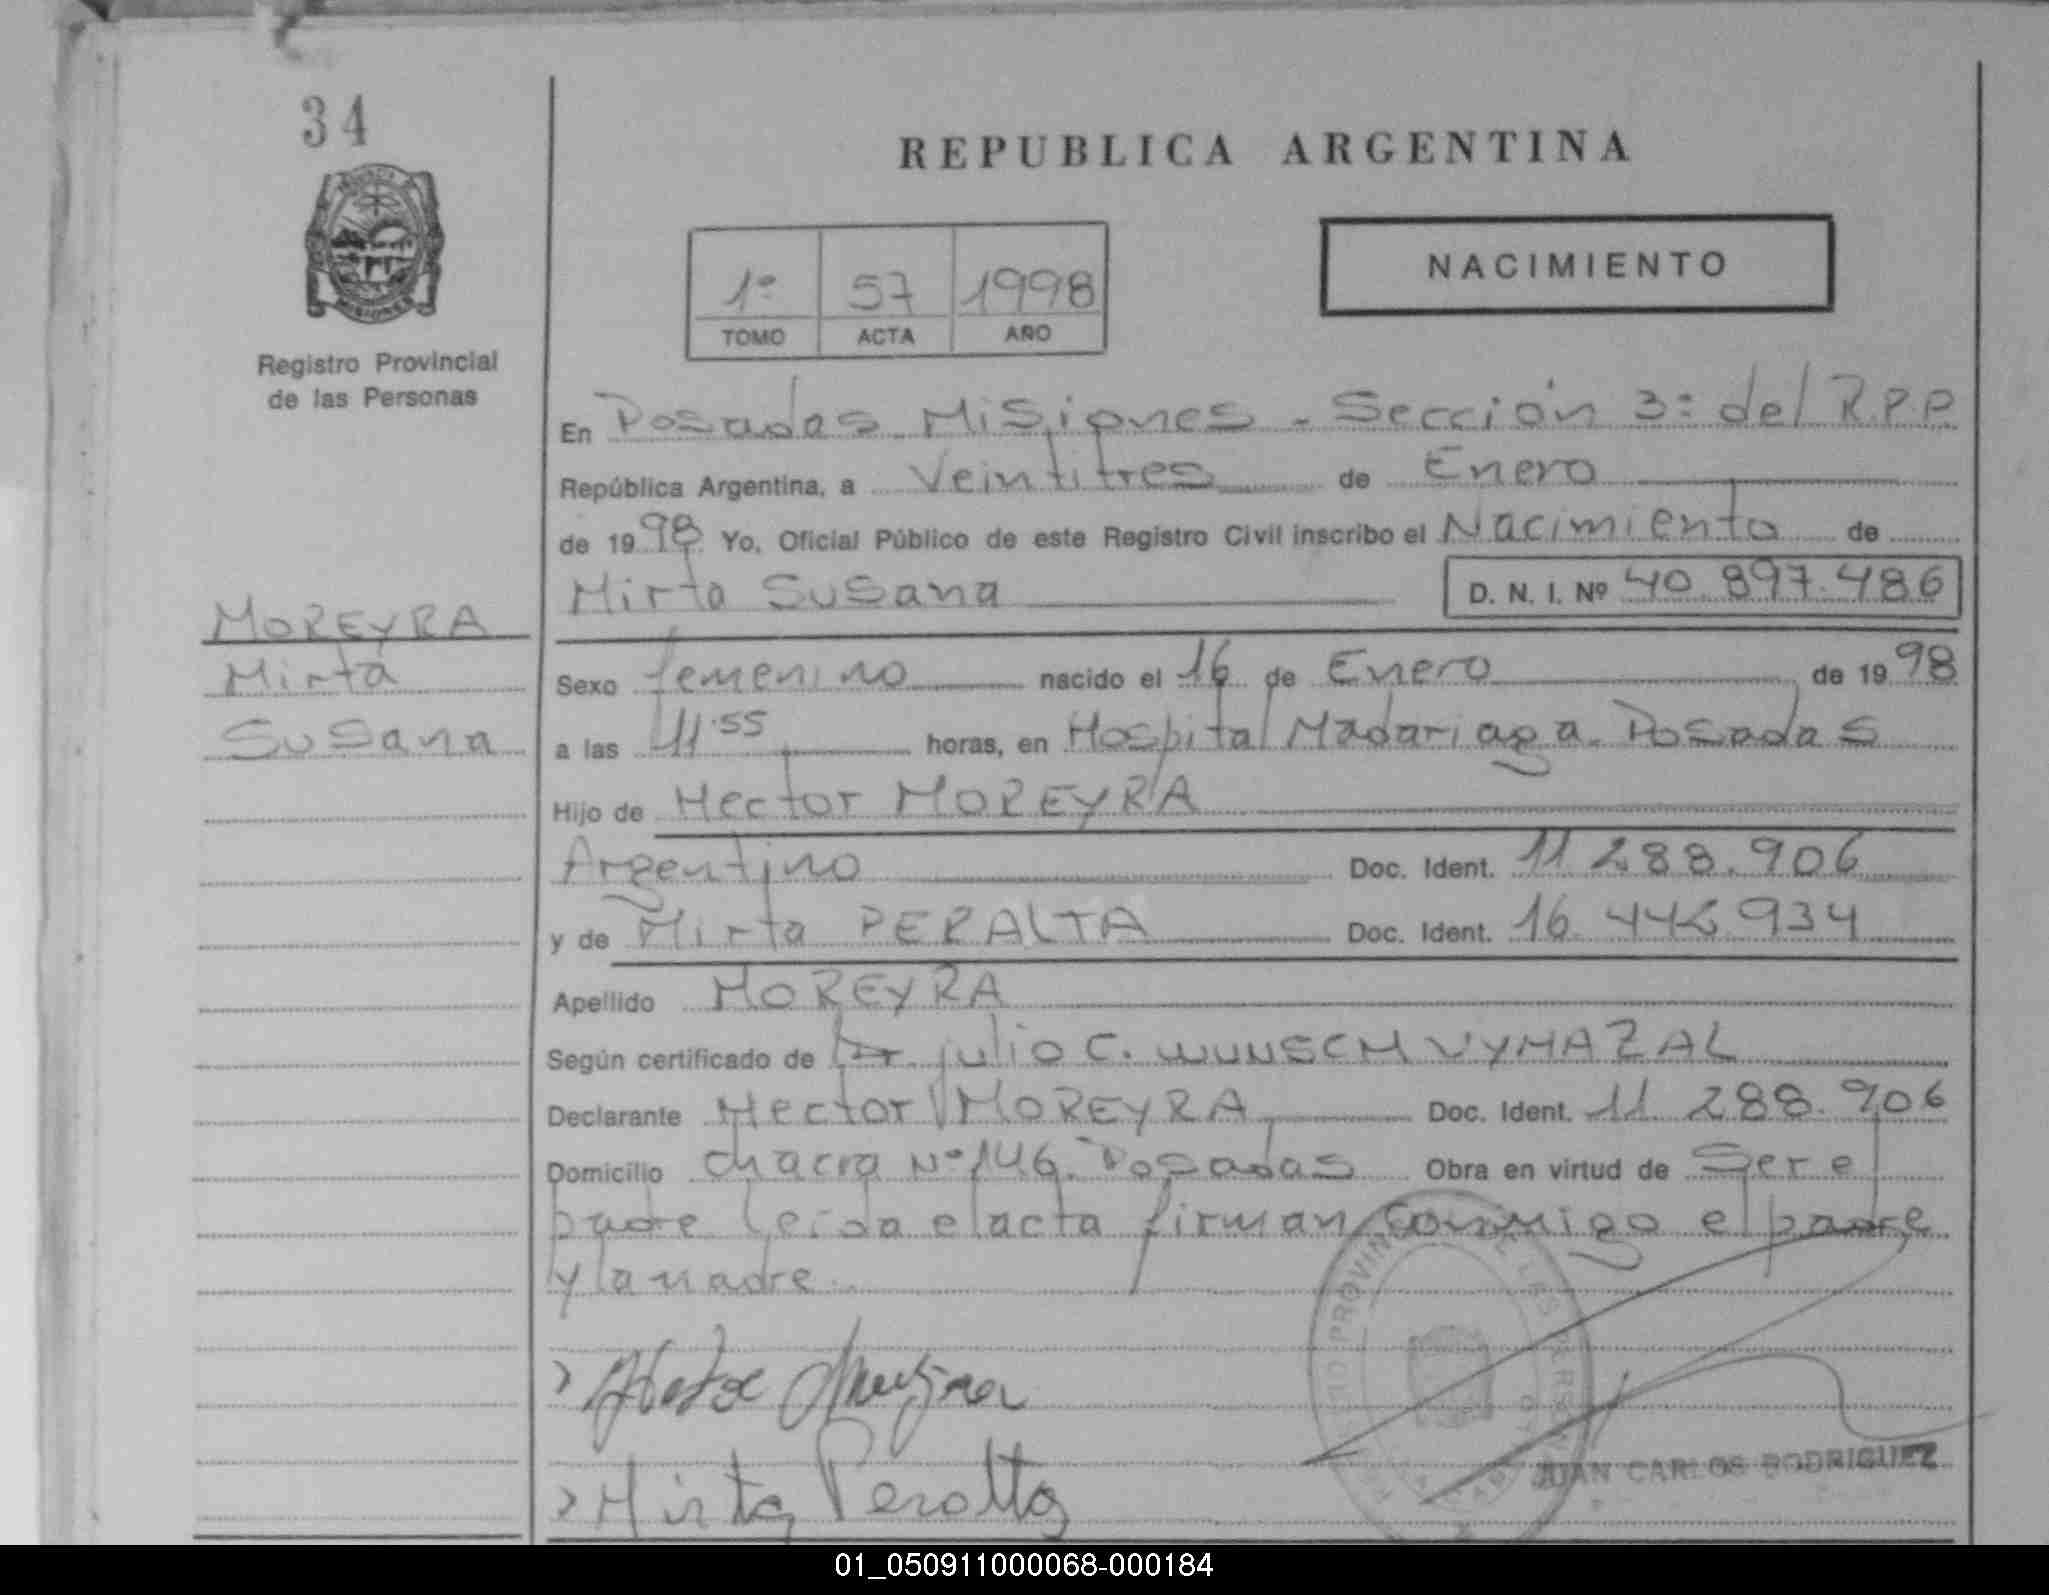 34
REPUBLICA ARGENTINA
1º 57 1998
TOMO ACTA AÑO
NACIMIENTO
Registro Provincial
de las Personas
En Posadas Misiones - Sección 3º del R.P.P.
República Argentina, a Veintitres de Enero
de 1998 Yo, Oficial Público de este Registro Civil inscribo el Nacimiento de
Mirta Susana D. N. I. Nº 40.897.486
MOREYRA
Mirta
Susana
Sexo femenino nacido el 16 de Enero de 1998
a las 11.55 horas, en Hospital Madariaga. Posadas
Hijo de Hector MOREYRA
Argentino Doc. Ident. 11.288.906
y de Mirta PERALTA Doc. Ident. 16 934
Apellido MOREYRA
Según certificado de julio C. WUNSCH VYHAZAL
Declarante Hector MOREYRA Doc. Ident. 11.288.906
Domicilio chacra Nº 146. Posadas Obra en virtud de Ser el
padre leida el acta firman conmigo el padre
y la madre.
Mirta Peralta
JUAN CARLOS RODRIGUEZ
01_050911000068-000184